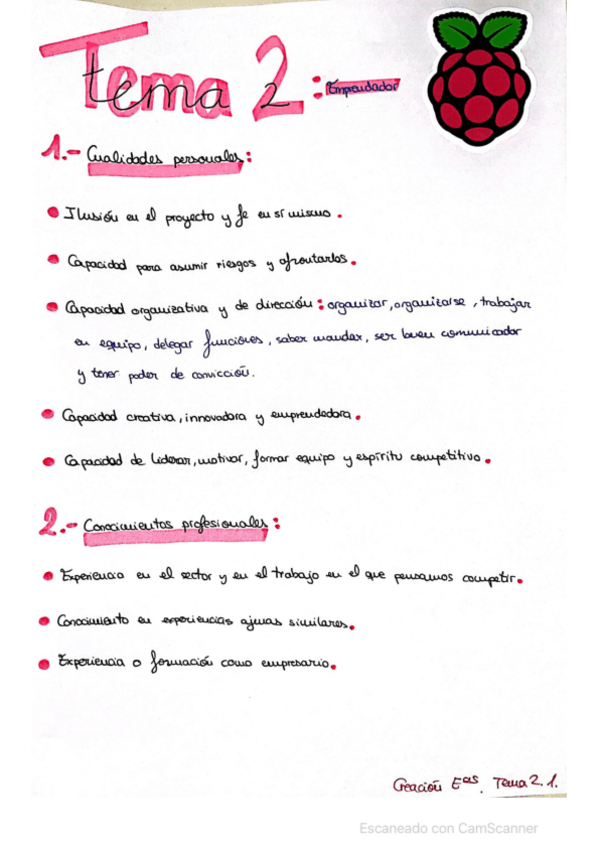 Tema 2: Emprendador
1.- Cualidades personales:
• Ilusión en el proyecto y fe en sí mismo.
• Capacidad para asumir riesgos y afrontarlos.
• Capacidad organizativa y de dirección: organizar, organizarse, trabajar
en equipo, delegar funciones, saber mandar, ser buen comunicador
y tener poder de convicción.
• Capacidad creativa, innovadora y emprendedora.
• Capacidad de liderar, motivar, formar equipo y espíritu competitivo.
2.- Conocimientos profesionales:
• Experiencia en el sector y en el trabajo en el que pensamos competir.
• Conocimiento en experiencias ajenas similares.
• Experiencia o formación como empresario.
Creación Eas. Tema 2. 1.
Escaneado con CamScanner